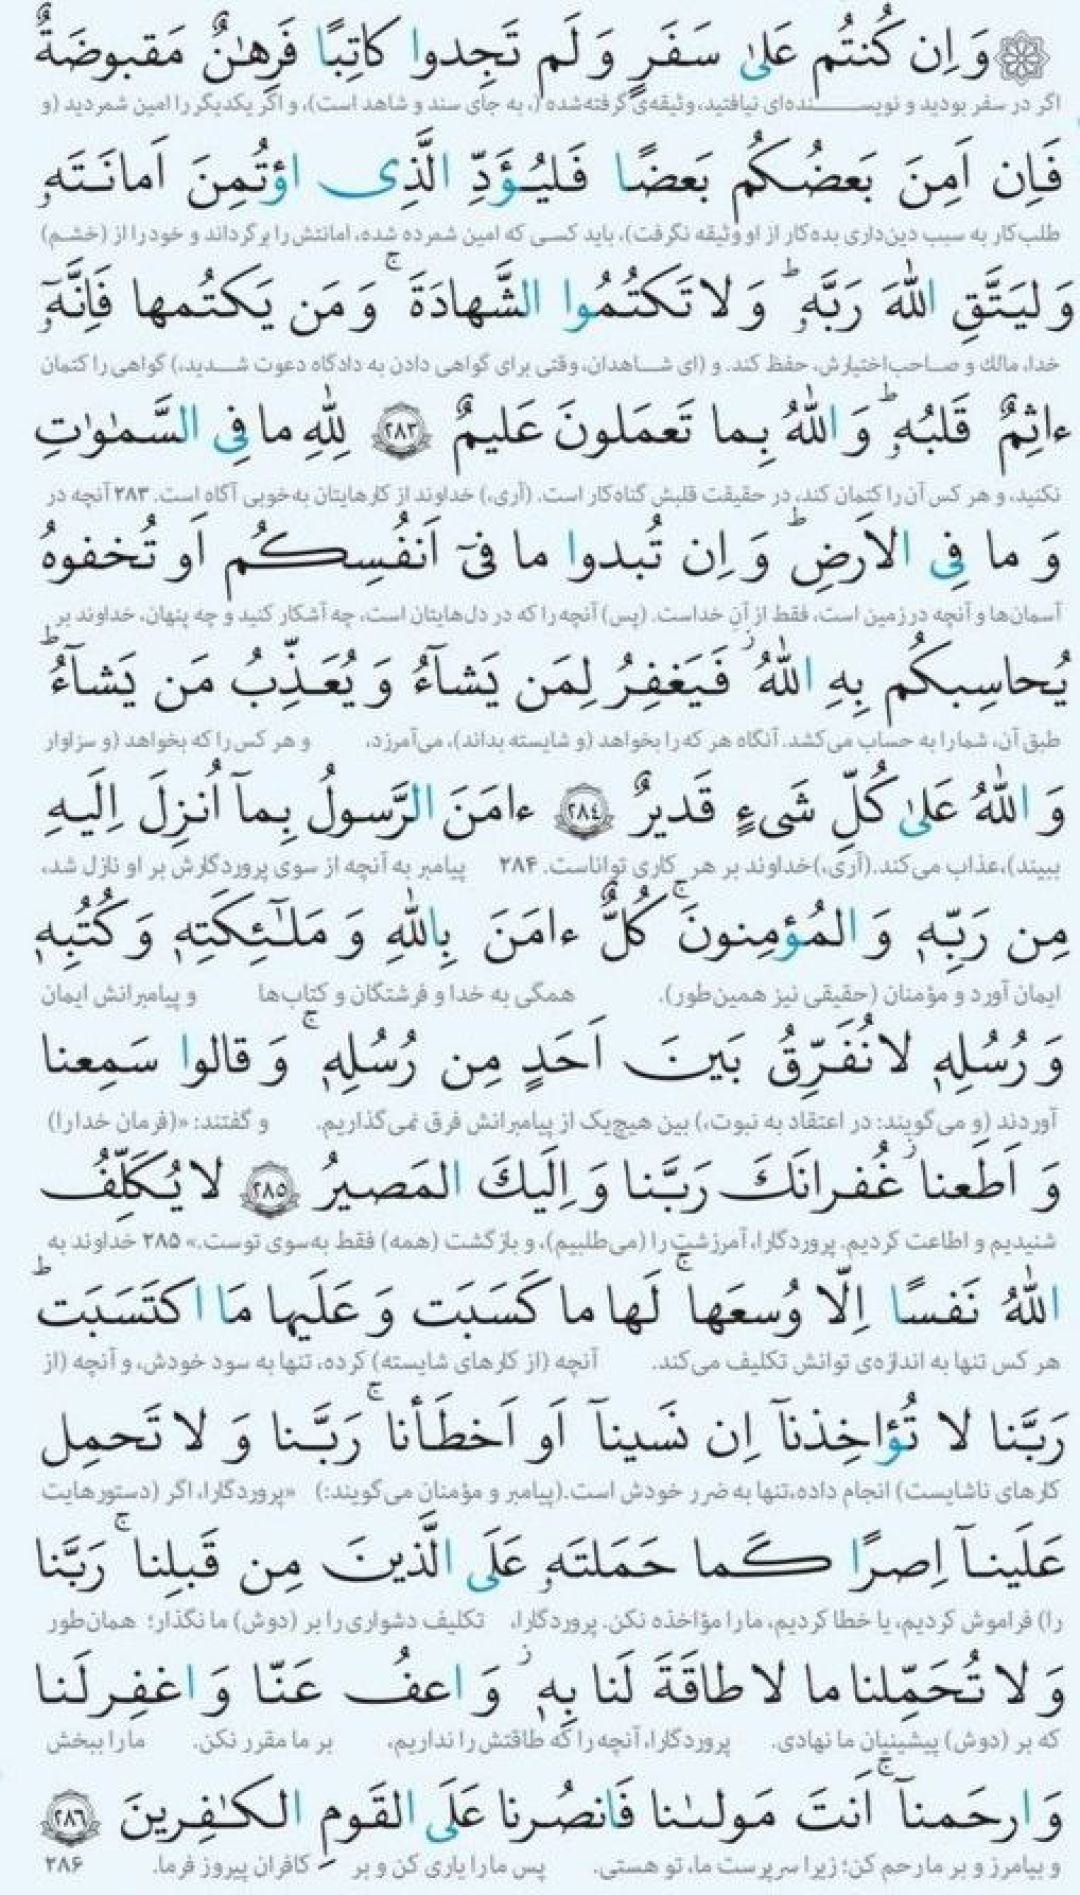 وَ اِن كُنتُم عَلىٰ سَفَرٍ وَ لَم تَجِدوا كاتِبًا فَرِهٰنٌ مَقبوضَةٌ
اگر در سفر بودید و نویسنده‌ای نیافتید، وثیقه‌ی گرفته‌شده (، به جای سند و شاهد است)، و اگر یکدیگر را امین شمردید (و
فَاِن اَمِنَ بَعضُكُم بَعضًا فَليُؤَدِّ الَّذِى اؤتُمِنَ اَمانَتَهٗ
طلب‌کار به سبب دین‌داری بده‌کار از او وثیقه نگرفت)، باید کسی که امین شمرده شده، امانتش را برگرداند و خود را از (خشم)
وَليَتَّقِ اللّٰهَ رَبَّهٗ ۗ وَ لا تَكتُمُوا الشَّهادَةَ ۚ وَ مَن يَكتُمها فَاِنَّهٗٓ
خدا، مالك و صاحب‌اختیارش، حفظ کند. و (ای شاهدان، وقتی برای گواهی دادن به دادگاه دعوت شدید،) گواهی را کتمان
ءاثِمٌ قَلبُهٗ ۗ وَ اللّٰهُ بِما تَعمَلونَ عَليمٌ ٢٨٣ لِلّٰهِ ما فِى السَّمٰوٰتِ
نکنید، و هر کس آن را کتمان کند، در حقیقت قلبش گناه‌کار است. (آری،) خداوند از کارهایتان به‌خوبی آگاه است. ۲۸۳ آنچه در
وَ ما فِى الاَرضِ ۗ وَ اِن تُبدوا ما فىٓ اَنفُسِكُم اَو تُخفوهُ
آسمان‌ها و آنچه در زمین است، فقط از آنِ خداست. (پس) آنچه را که در دل‌هایتان است، چه آشکار کنید و چه پنهان، خداوند بر
يُحاسِبكُم بِهِ اللّٰهُ ۖ فَيَغفِرُ لِمَن يَشآءُ وَ يُعَذِّبُ مَن يَشآءُ ۗ
طبق آن، شما را به حساب می‌کشد. آنگاه هر که را بخواهد (و شایسته بداند)، می‌آمرزد، و هر کس را که بخواهد (و سزاوار
وَ اللّٰهُ عَلىٰ كُلِّ شَىءٍ قَديرٌ ٢٨٤ ءامَنَ الرَّسولُ بِمآ اُنزِلَ اِلَيهِ
ببیند)، عذاب می‌کند. (آری،) خداوند بر هر کاری تواناست. ۲۸۴ پیامبر به آنچه از سوی پروردگارش بر او نازل شد،
مِن رَبِّهٖ وَ المُؤمِنونَ ۚ كُلٌّ ءامَنَ بِاللّٰهِ وَ مَلٰٓئِكَتِهٖ وَ كُتُبِهٖ
ایمان آورد و مؤمنان (حقیقی نیز همین‌طور). همگی به خدا و فرشتگان و کتاب‌ها و پیامبرانش ایمان
وَ رُسُلِهٖ لا نُفَرِّقُ بَينَ اَحَدٍ مِن رُسُلِهٖ ۚ وَ قالوا سَمِعنا
آوردند (و می‌گویند: در اعتقاد به نبوت،) بین هیچ‌یک از پیامبرانش فرق نمی‌گذاریم. و گفتند: «(فرمان خدا را)
وَ اَطَعنا ۖ غُفرانَكَ رَبَّنا وَ اِلَيكَ المَصيرُ ٢٨٥ لا يُكَلِّفُ
شنیدیم و اطاعت کردیم. پروردگارا، آمرزشت را (می‌طلبیم)، و بازگشت (همه) فقط به‌سوی توست.» ۲۸۵ خداوند به
اللّٰهُ نَفسًا اِلّا وُسعَها ۚ لَها ما كَسَبَت وَ عَلَيها مَا اكتَسَبَت ۗ
هر کس تنها به اندازه‌ی توانش تکلیف می‌کند. آنچه (از کارهای شایسته) کرده، تنها به سود خودش، و آنچه (از
رَبَّنا لا تُؤاخِذنآ اِن نَسينآ اَو اَخطَأنا ۚ رَبَّنا وَ لا تَحمِل
کارهای ناشایست) انجام داده، تنها به ضرر خودش است. (پیامبر و مؤمنان می‌گویند:) «پروردگارا، اگر (دستورهایت
عَلَينآ اِصرًا كَما حَمَلتَهٗ عَلَى الَّذينَ مِن قَبلِنا ۚ رَبَّنا
را) فراموش کردیم، یا خطا کردیم، ما را مؤاخذه نکن. پروردگارا، تکلیف دشواری را بر (دوش) ما نگذار؛ همان‌طور
وَ لا تُحَمِّلنا ما لا طاقَةَ لَنا بِهٖ ۖ وَ اعفُ عَنّا وَ اغفِر لَنا
که بر (دوش) پیشینیان ما نهادی. پروردگارا، آنچه را که طاقتش را نداریم، بر ما مقرر نکن. ما را ببخش
وَ ارحَمنآ ۚ اَنتَ مَولىٰنا فَانصُرنا عَلَى القَومِ الكٰفِرينَ ٢٨٦
و بیامرز و بر ما رحم کن؛ زیرا سرپرست ما، تو هستی. پس ما را یاری کن و بر کافران پیروز فرما. ۲۸۶